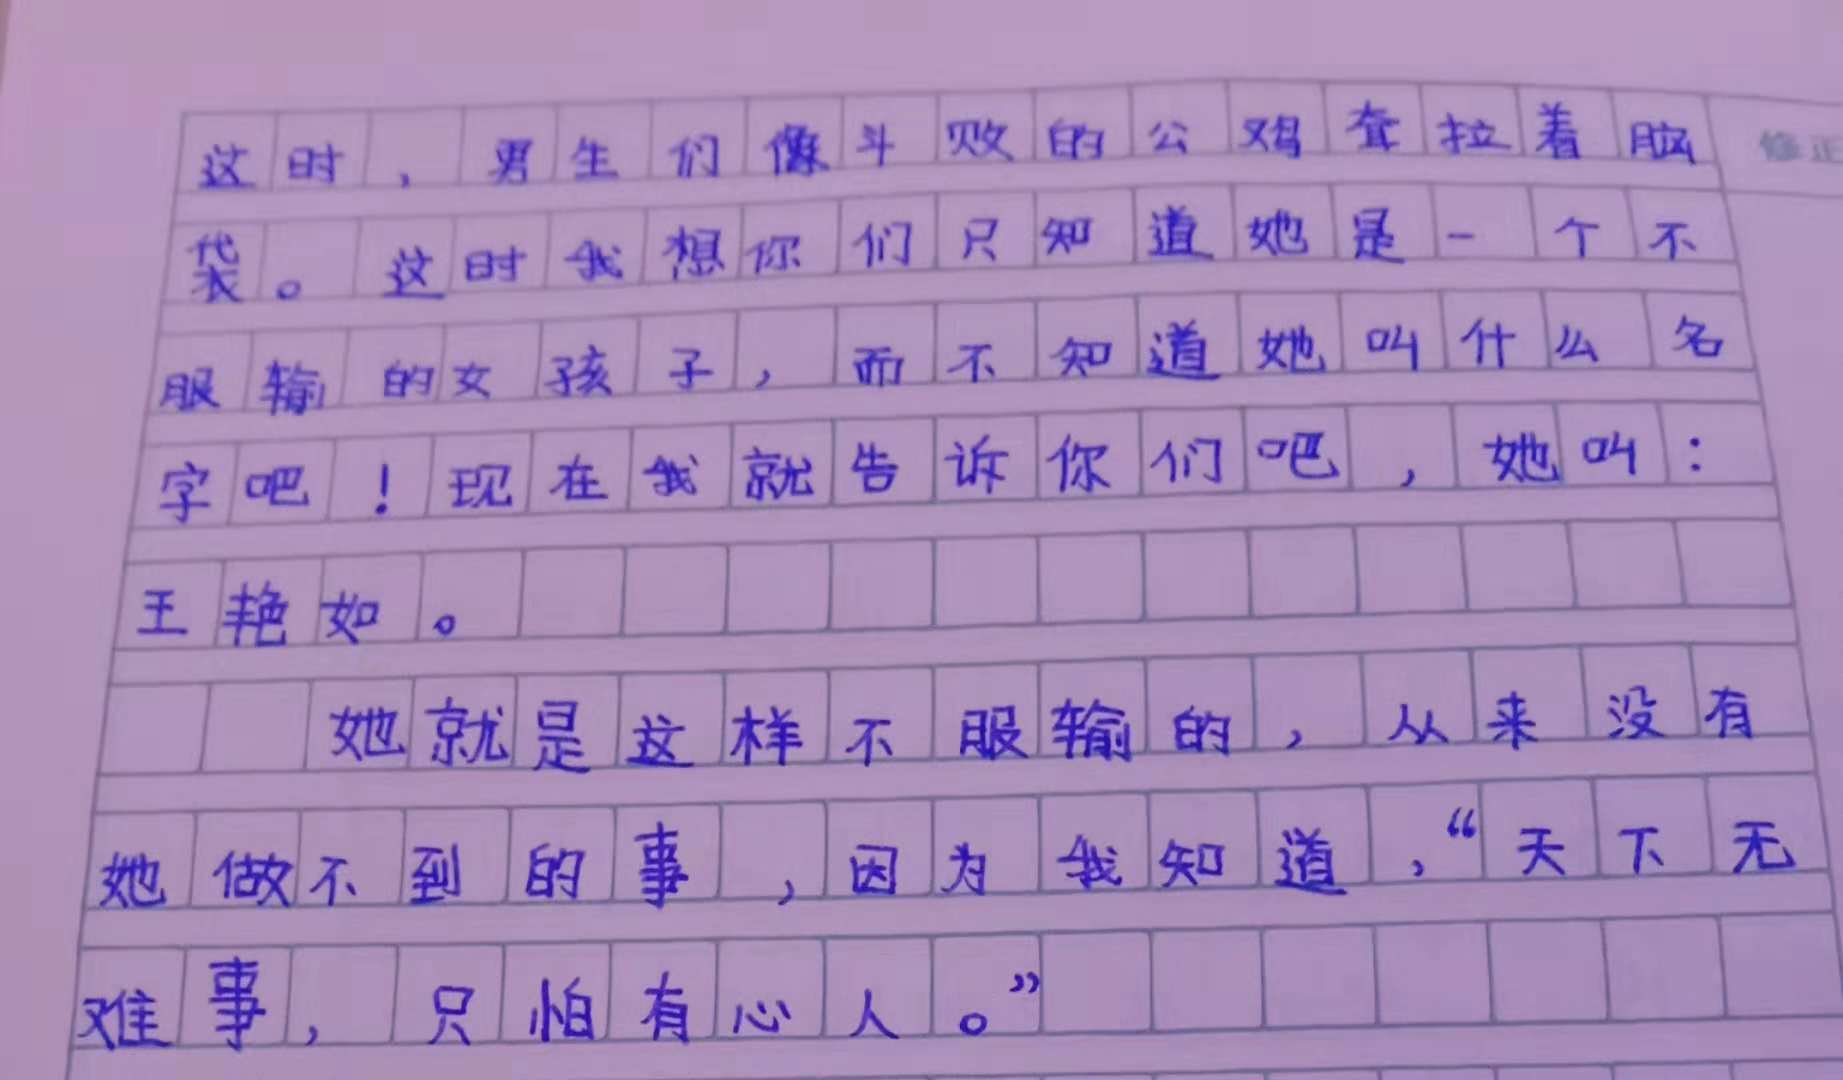 这时，男生们像斗败的公鸡耷拉着脑
袋。这时我想你们只知道她是一个不
服输的女孩子，而不知道她叫什么名
字吧！现在我就告诉你们吧，她叫：
王艳如。
她就是这样不服输的，从来没有
她做不到的事，因为我知道，“天下无
难事，只怕有心人。”
修正